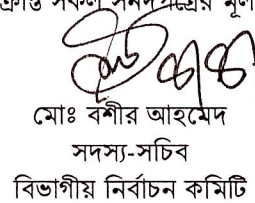 সকল সনদপত্রের মূল
মোঃ বশীর আহমেদ
সদস্য-সচিব
বিভাগীয় নির্বাচন কমিটি